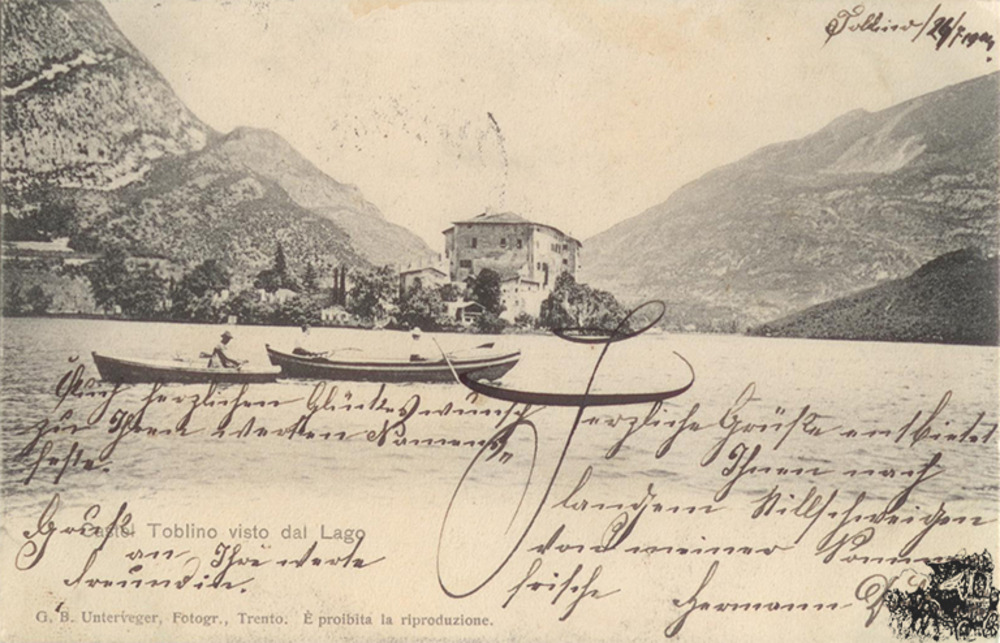 Toblino/26/7.1904.
Auch herzlichen Glückswunsch
zu Ihren werten Namens-
feste.
Herzliche Grüße entbietet
Ihnen nach
langem Stillschweigen
von meiner Sommer
frische
Hermann
Gruß
an Ihre werte
Freundin.
Castel Toblino visto dal Lago
G. B. Unterveger, Fotogr., Trento. È proibita la riproduzione.